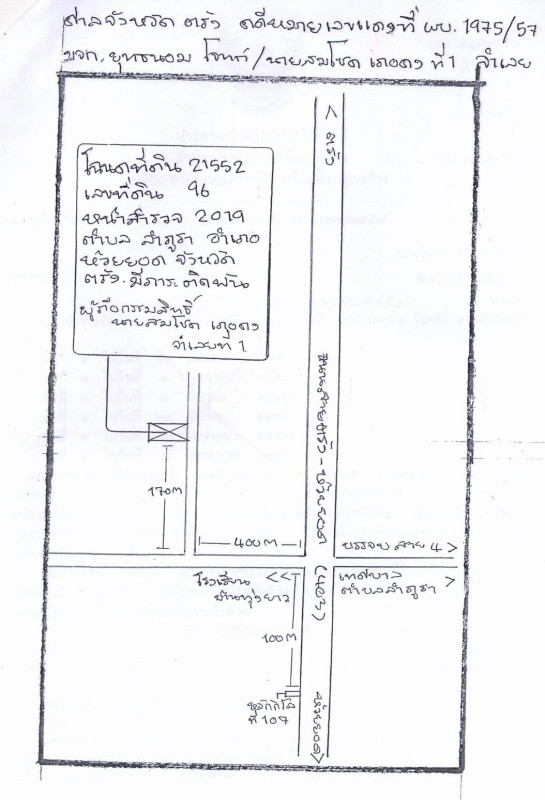 ศาลจังหวัด ตรัง คดีหมายเลขแดงที่ ผบ. 1975/57
บจก. ยุทธนอม โจทก์ / นายสมโชค เภอคง ที่ 1 จำเลย
< ตรัง
โฉนดที่ดิน 21552
เลขที่ดิน 96
หน้าสำรวจ 2019
ตำบล ลำภูรา อำเภอ
ห้วยยอด จังหวัด
ตรัง. มีภาระติดพัน
ผู้ถือกรรมสิทธิ์
นายสมโชค เภอคง
จำเลยที่ 1
ถนนสายตรัง - ห้วยยอด (403)
170m
400m
บรรจบ สาย 4 >
โรงเรียน <<
บ้านทุ่งยาว
เทศบาล >
ตำบลลำภูรา
100m
หลักกิโล
ที่ 107
ห้วยยอด >